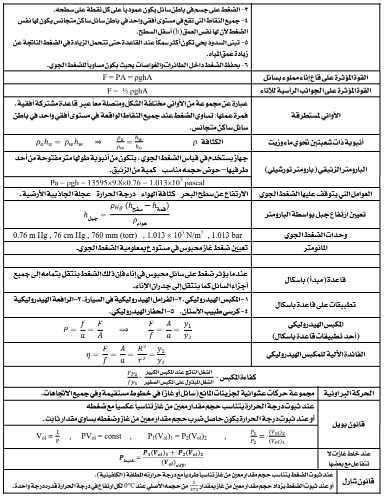 ٣- الضغط على جسم في باطن سائل يكون عمودياً على كل نقطة على سطحه.
٤- جميع النقاط التي تقع في مستوى أفقي واحد في باطن سائل ساكن متجانس يكون لها نفس
الضغط لأن لها نفس العمق (h) أسفل السطح.
٥- تبنى السدود بحيث تكون أكثر سمكاً عند القاعدة حتى تتحمل الزيادة في الضغط الناتجة عن
زيادة عمق المياه.
٦- يحفظ الضغط داخل الطائرات والغواصات بحيث يكون مساوياً للضغط الجوي.
القوة المؤثرة على قاع إناء مملوء بسائل
F = PA = ρghA
القوة المؤثرة على الجوانب الرأسية للإناء
F = ½ ρghA
الأواني المستطرقة
عبارة عن مجموعة من الأواني مختلفة الشكل ومتصلة معاً عبر قاعدة مشتركة أفقية.
فمرة عملها: تساوى الضغط عند جميع النقاط الواقعة في مستوى أفقي واحد في باطن
سائل ساكن متجانس.
أنبوبة ذات شعبتين تحوي ماء وزيت
ρ الكثافة ρo/ρw = hw/ho ⟹ ρoho = ρwhw
البارومتر الزئبقي (بارومتر تورشيلي)
جهاز يستخدم في قياس الضغط الجوي، يتكون من أنبوبة طولها متر مفتوحة من أحد
طرفيها – حوض – حجمه مناسب كمية من الزئبق.
Pa = ρgh = 13595×9.8×0.76 = 1.013×10⁵ pascal
العوامل التي يتوقف عليها الضغط الجوي
الارتفاع عن سطح البحر كثافة الهواء درجة الحرارة عجلة الجاذبية الأرضية.
تعيين ارتفاع جبل بواسطة البارومتر
وحدات الضغط الجوي
0.76 m Hg , 76 cm Hg , 760 mm (torr) , 1.013 × 10⁵ N/m² , 1.013 bar
المانومتر
تعيين ضغط غاز محبوس في مستودع بمعلومية الضغط الجوي.
قاعدة (مبدأ) باسكال
عندما يؤثر ضغط على سائل محبوس في إناء فإن ذلك الضغط ينتقل بتمامه إلى جميع
أجزاء السائل كما ينتقل إلى جدران الإناء.
تطبيقات على قاعدة باسكال
١- المكبس الهيدروليكي. ٢- الفرامل الهيدروليكية في السيارة. ٣- الرافعة الهيدروليكية
٤- كرسي طبيب الأسنان. ٥- الحفار الهيدروليكي.
المكبس الهيدروليكي
(أحد تطبيقات قاعدة باسكال)
P = f/a = F/A ⟹ F/f = A/a = y1/y2
الفائدة الآلية للمكبس الهيدروليكي
η = F/f = A/a = R²/r² = y1/y2
كفاءة المكبس
الحركة البراونية
مجموعة حركات عشوائية لجزيئات المائع (سائل أو غاز) في خطوط مستقيمة وفي جميع الاتجاهات.
قانون بويل
عند ثبوت درجة الحرارة يتناسب حجم مقدار معين من غاز تناسباً عكسياً مع ضغطه
أو عند ثبوت درجة الحرارة يكون حاصل ضرب حجم مقدار معين من غاز وضغطه يساوي مقدار ثابت.
Vol ∝ 1/P , PVol = const , P1(Vol)1 = P2(Vol)2 , P1/P2 = (Vol)2/(Vol)1
عند خلط غازات لا
تتفاعل مع بعضها
قانون شارل
عند ثبوت الضغط يتناسب حجم مقدار معين من غاز تناسباً طردياً مع درجة حرارته المطلقة (الكلفينية).